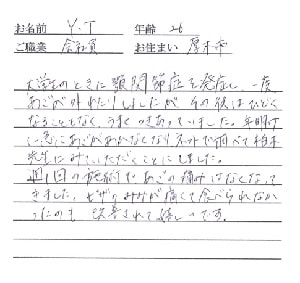 お名前 Y.T 年齢 26
ご職業 会社員 お住まい 厚木市
大学生のときに顎関節症を発症し、一度
あごが外れたりしましたが その後はひどく
なることもなく、うまくつきあっていました。年明け
に急にあごがあかなくなり ネットで調べて柏木
先生にみていただくことにしました。
週1回の施術であごの痛みはなくなって
きました。せずりみみが痛くて食べられなか
ったのも 改善されて嬉しいです。